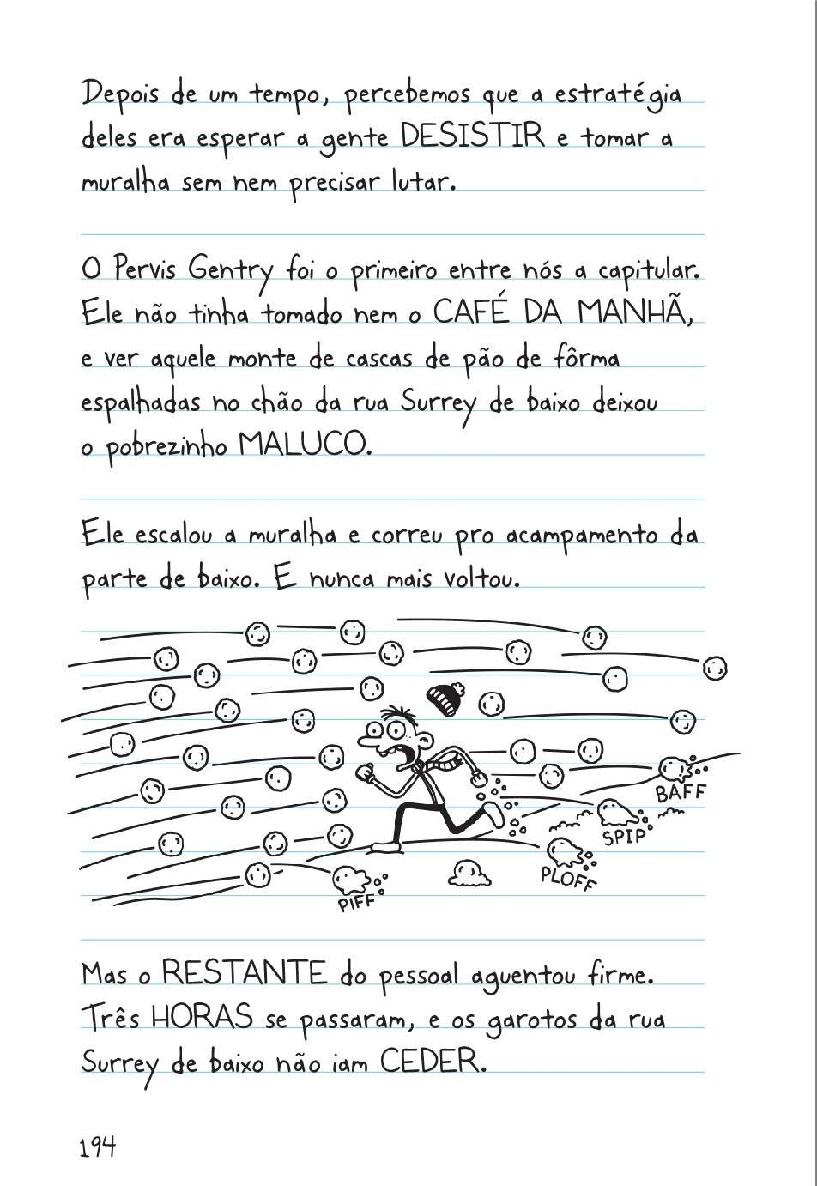 Depois de um tempo, percebemos que a estratégia
deles era esperar a gente DESISTIR e tomar a
muralha sem nem precisar lutar.
O Pervis Gentry foi o primeiro entre nós a capitular.
Ele não tinha tomado nem o CAFÉ DA MANHÃ,
e ver aquele monte de cascas de pão de fôrma
espalhadas no chão da rua Surrey de baixo deixou
o pobrezinho MALUCO.
Ele escalou a muralha e correu pro acampamento da
parte de baixo. E nunca mais voltou.
BAFF
SPIP
PLOFF
PIFF
Mas o RESTANTE do pessoal aguentou firme.
Três HORAS se passaram, e os garotos da rua
Surrey de baixo não iam CEDER.
194